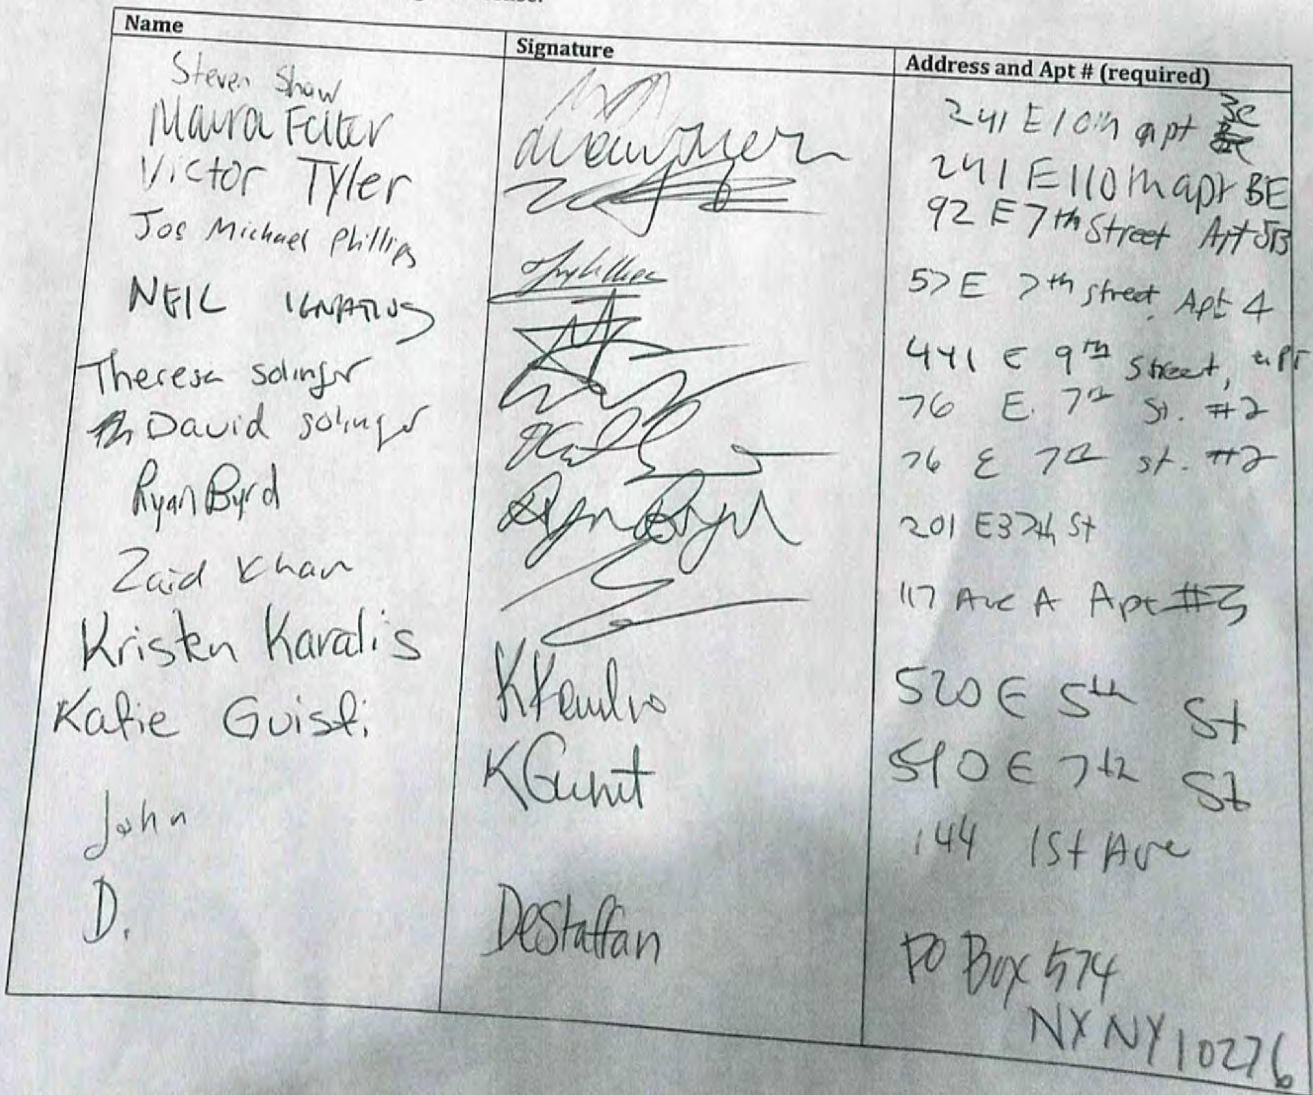 Name Signature Address and Apt # (required)
Steven Shaw 241 E 10th apt 3E
Maura Felter 241 E 110th apt BE
Victor Tyler 92 E 7th Street Apt 5B
Jos Michael Phillips 57 E 7th street, Apt 4
NEIL IGNATIUS 441 E 9th Street, apt
Theresa Solinger 76 E. 7th St. #2
David Solinger 76 E 7th st. #2
Ryan Byrd Ryan Byrd 201 E 37th St
Zaid Khan 117 Ave A Apt #3
Kristen Karalis 520 E 5th St
Katie Guisti 510 E 7th St
John 144 1st Ave
D. DeStaffan PO Box 574
NY NY 10276